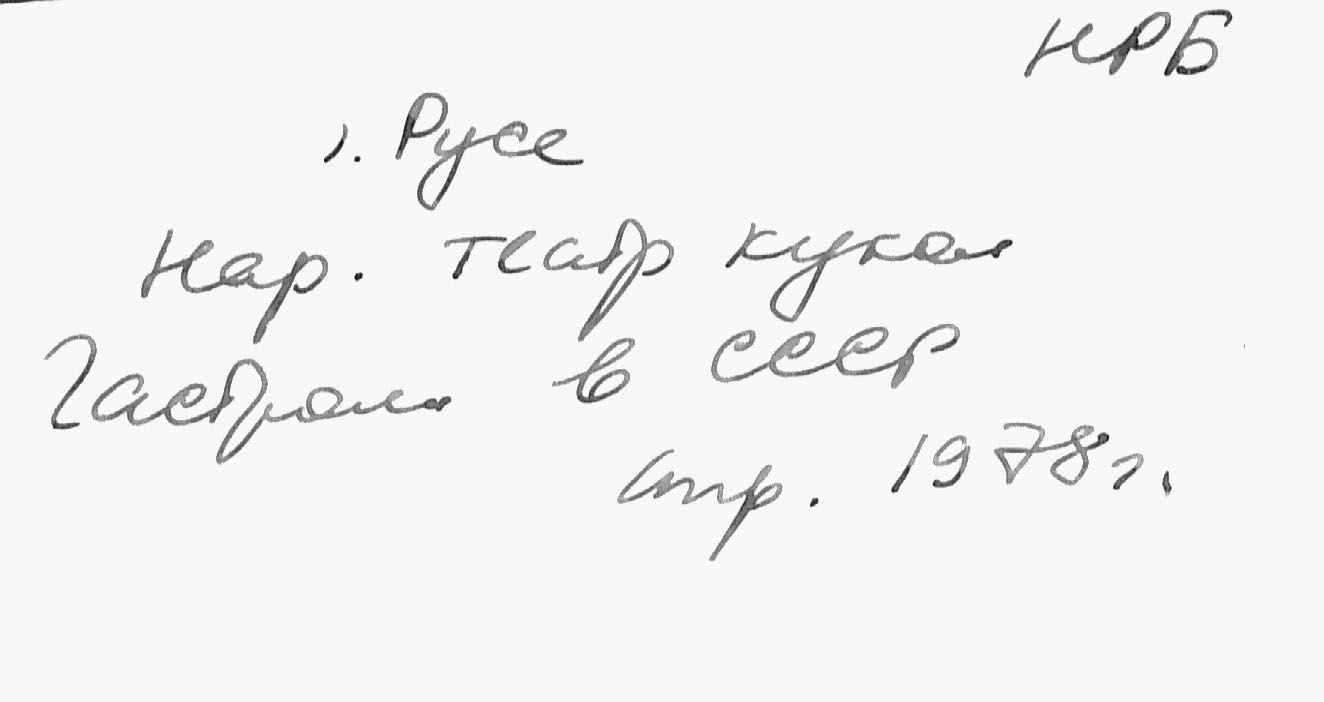 НРБ
г. Русе
Нар. театр кукол
Гастроли в СССР
апр. 1978 г.